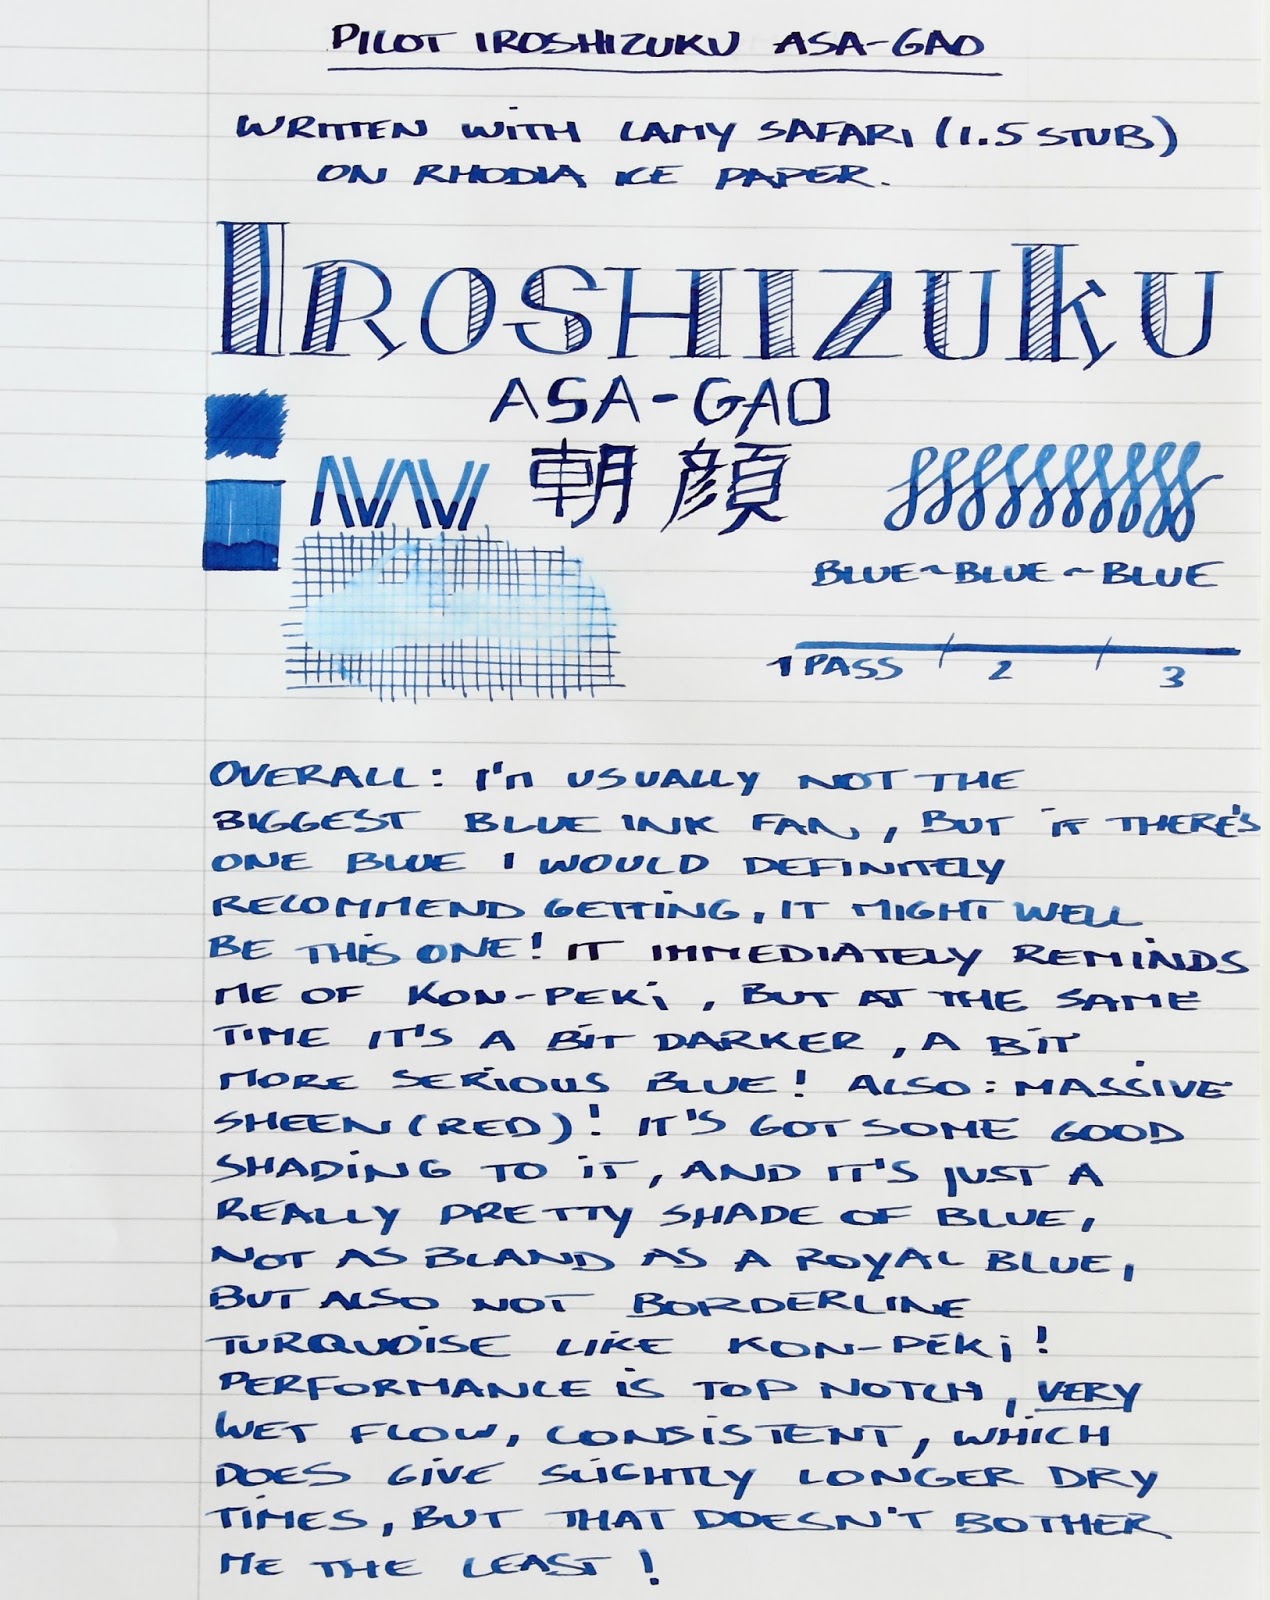 PILOT IROSHIZUKU ASA-GAO
WRITTEN WITH LAMY SAFARI (1.5 STUB)
ON RHODIA ICE PAPER.
IROSHIZUKU
ASA-GAO
朝顔
BLUE~BLUE~BLUE
1 PASS / 2 / 3
OVERALL: I'M USUALLY NOT THE
BIGGEST BLUE INK FAN, BUT IF THERE'S
ONE BLUE I WOULD DEFINITELY
RECOMMEND GETTING, IT MIGHT WELL
BE THIS ONE! IT IMMEDIATELY REMINDS
ME OF KON-PEKI, BUT AT THE SAME
TIME IT'S A BIT DARKER, A BIT
MORE SERIOUS BLUE! ALSO: MASSIVE
SHEEN (RED)! IT'S GOT SOME GOOD
SHADING TO IT, AND IT'S JUST A
REALLY PRETTY SHADE OF BLUE,
NOT AS BLAND AS A ROYAL BLUE,
BUT ALSO NOT BORDERLINE
TURQUOISE LIKE KON-PEKI!
PERFORMANCE IS TOP NOTCH, VERY
WET FLOW, CONSISTENT, WHICH
DOES GIVE SLIGHTLY LONGER DRY
TIMES, BUT THAT DOESN'T BOTHER
ME THE LEAST!